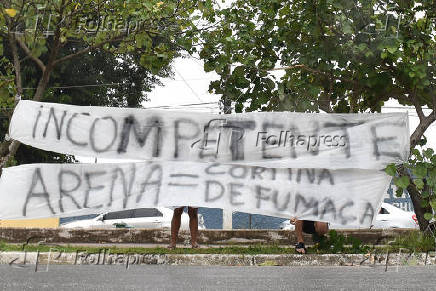 Folhapress
INCOMPETENTE
Folhapress
ARENA = CORTINA
DE FUMAÇA
Folhapress